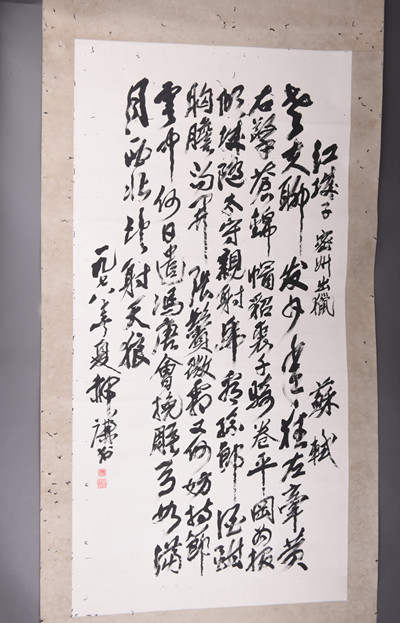 江城子 密州出獵 蘇軾
老夫聊发少年狂左牽黃
右擎蒼錦帽貂裘千騎卷平岡为报
傾城隨太守親射虎看孫郎酒酣
胸膽尚开張鬢微霜又何妨持節
雲中何日遣馮唐會挽雕弓如滿
月西北望射天狼
一九七八年夏